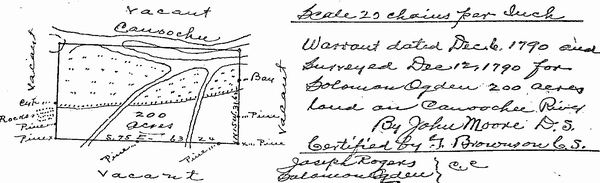 Vacant
Canoochee
Vacant
Bay
Vacant
Rocks
Pine
Pine
Pine
Pine
Pine
Pine
200
acres
5.75 E
63
24
Vacant
Scale 20 chains per Inch
Warrant dated Dec. 6, 1790 and
Surveyed Dec 12, 1790 for
Solomon Ogden 200 acres
land on Canoochee River
By John Moore D. S.
Certified by J. Brownson C. S.
Joseph Rogers
Solomon Ogden } C.C